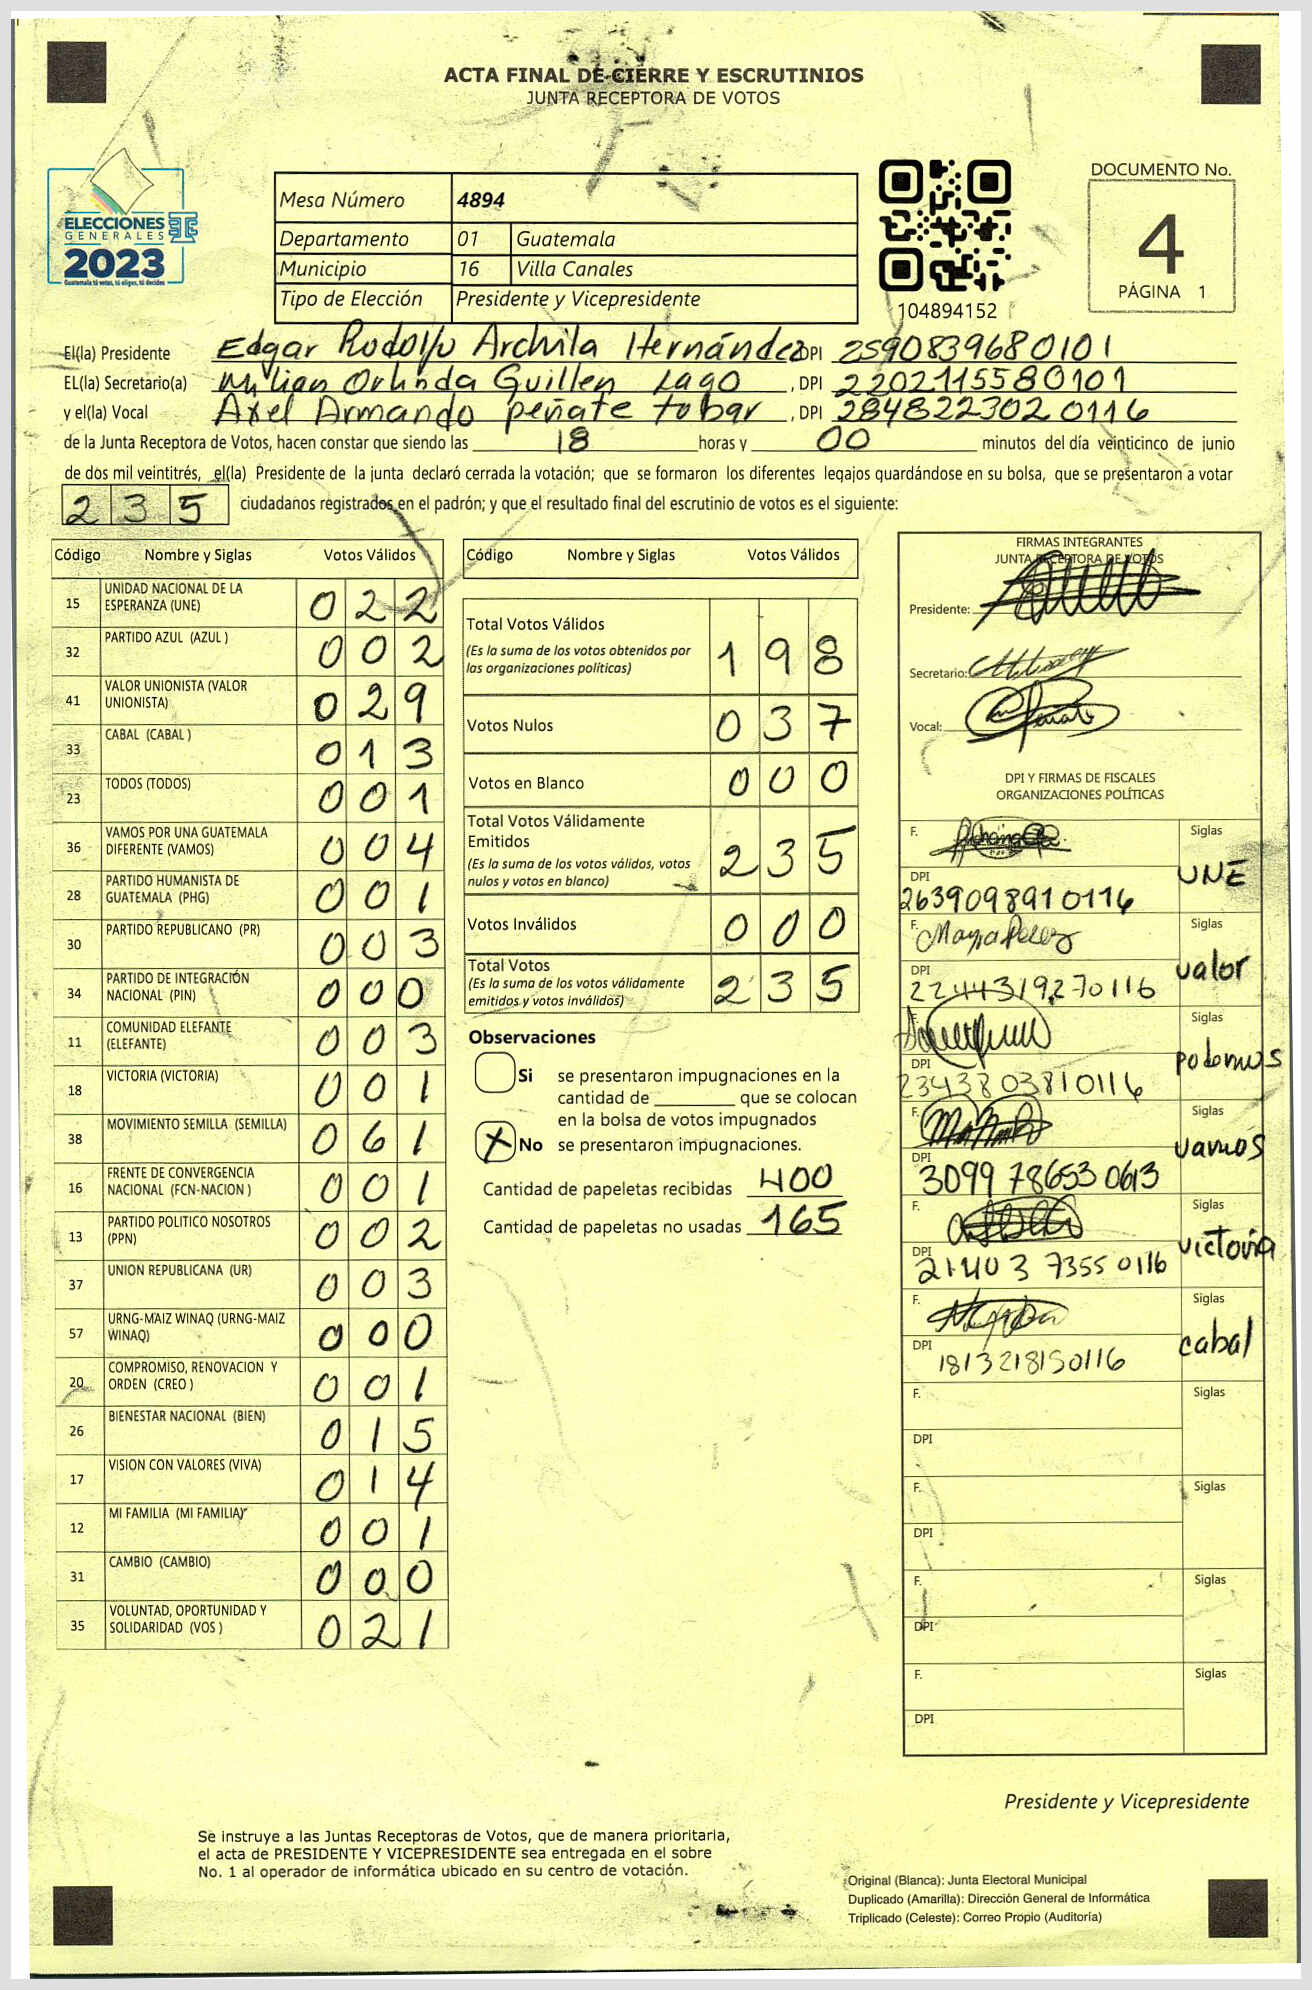 ACTA FINAL DE CIERRE Y ESCRUTINIOS
JUNTA RECEPTORA DE VOTOS
ELECCIONES
GENERALES
2023
Guatemala tú votas, tú eliges, tú decides
Mesa Número 4894
Departamento 01 Guatemala
Municipio 16 Villa Canales
Tipo de Elección Presidente y Vicepresidente
104894152
DOCUMENTO No.
4
PÁGINA 1
El(la) Presidente Edgar Rodolfo Archila Hernández DPI 2590839680101
EL(la) Secretario(a) Milian Orlinda Guillen Lago , DPI 2202115580101
y el(la) Vocal Axel Armando peñate tobar , DPI 2848223020116
de la Junta Receptora de Votos, hacen constar que siendo las 18 horas y 00 minutos del día veinticinco de junio
de dos mil veintitrés, el(la) Presidente de la junta declaró cerrada la votación; que se formaron los diferentes legajos guardándose en su bolsa, que se presentaron a votar
235 ciudadanos registrados en el padrón; y que el resultado final del escrutinio de votos es el siguiente:
Código Nombre y Siglas Votos Válidos
15 UNIDAD NACIONAL DE LA ESPERANZA (UNE) 022
32 PARTIDO AZUL (AZUL ) 002
41 VALOR UNIONISTA (VALOR UNIONISTA) 029
33 CABAL (CABAL ) 013
23 TODOS (TODOS) 001
36 VAMOS POR UNA GUATEMALA DIFERENTE (VAMOS) 004
28 PARTIDO HUMANISTA DE GUATEMALA (PHG) 001
30 PARTIDO REPUBLICANO (PR) 003
34 PARTIDO DE INTEGRACIÓN NACIONAL (PIN) 000
11 COMUNIDAD ELEFANTE (ELEFANTE) 003
18 VICTORIA (VICTORIA) 001
38 MOVIMIENTO SEMILLA (SEMILLA) 061
16 FRENTE DE CONVERGENCIA NACIONAL (FCN-NACION ) 001
13 PARTIDO POLITICO NOSOTROS (PPN) 002
37 UNION REPUBLICANA (UR) 003
57 URNG-MAIZ WINAQ (URNG-MAIZ WINAQ) 000
20 COMPROMISO, RENOVACION Y ORDEN (CREO ) 001
26 BIENESTAR NACIONAL (BIEN) 015
17 VISION CON VALORES (VIVA) 014
12 MI FAMILIA (MI FAMILIA) 001
31 CAMBIO (CAMBIO) 000
35 VOLUNTAD, OPORTUNIDAD Y SOLIDARIDAD (VOS ) 021
Código Nombre y Siglas Votos Válidos
Total Votos Válidos 198
(Es la suma de los votos obtenidos por
las organizaciones políticas)
Votos Nulos 037
Votos en Blanco 000
Total Votos Válidamente
Emitidos 235
(Es la suma de los votos válidos, votos
nulos y votos en blanco)
Votos Inválidos 000
Total Votos 235
(Es la suma de los votos válidamente
emitidos y votos inválidos)
Observaciones
Si se presentaron impugnaciones en la
cantidad de ________ que se colocan
en la bolsa de votos impugnados
X No se presentaron impugnaciones.
Cantidad de papeletas recibidas 400
Cantidad de papeletas no usadas 165
FIRMAS INTEGRANTES
JUNTA RECEPTORA DE VOTOS
Presidente:
Secretario:
Vocal:
DPI Y FIRMAS DE FISCALES
ORGANIZACIONES POLÍTICAS
F. Siglas UNE
DPI 2639098910116
F. Mayra Perez Siglas valor
DPI 2244319270116
F. Siglas podemos
DPI 2343803810116
F. Siglas vamos
DPI 3099 78653 0613
F. Siglas victoria
DPI 21403 7355 0116
F. Siglas cabal
DPI 1813218150116
F. Siglas
DPI
F. Siglas
DPI
F. Siglas
DPI
F. Siglas
DPI
Presidente y Vicepresidente
Se instruye a las Juntas Receptoras de Votos, que de manera prioritaria,
el acta de PRESIDENTE Y VICEPRESIDENTE sea entregada en el sobre
No. 1 al operador de informática ubicado en su centro de votación.
Original (Blanca): Junta Electoral Municipal
Duplicado (Amarilla): Dirección General de Informática
Triplicado (Celeste): Correo Propio (Auditoría)